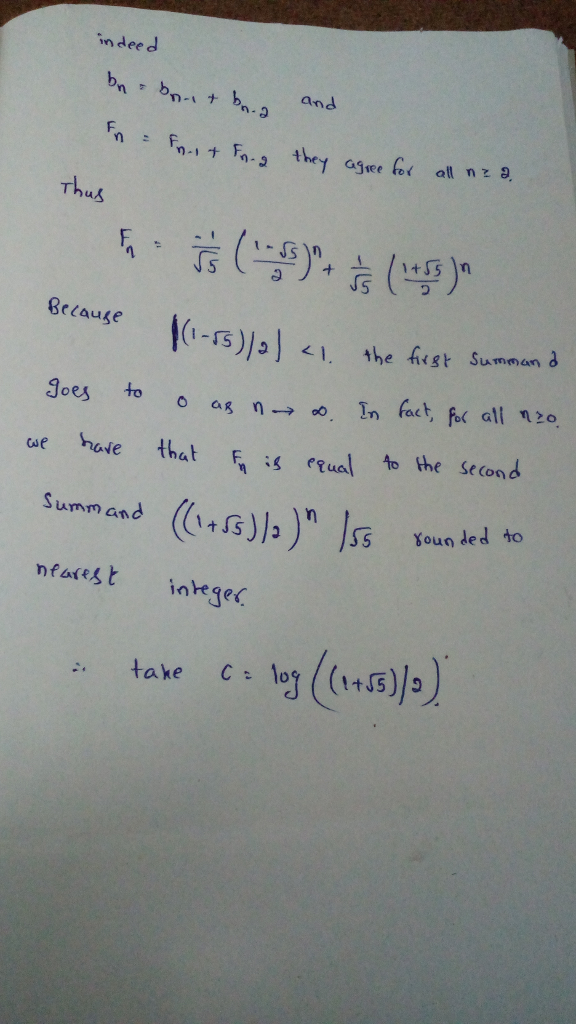 indeed
bn = bn-1 + bn-2 and
Fn = Fn-1 + Fn-2 they agree for all n ≥ 2.
Thus
Fn = -1/√5 ((1-√5)/2)^n + 1/√5 ((1+√5)/2)^n
Because |(1-√5)/2| <1. the first summand
goes to 0 as n → ∞. In fact, for all n≥0.
we have that Fn is equal to the second
summand ((1+√5)/2)^n /√5 rounded to
nearest integer.
∴ take C = log((1+√5)/2).